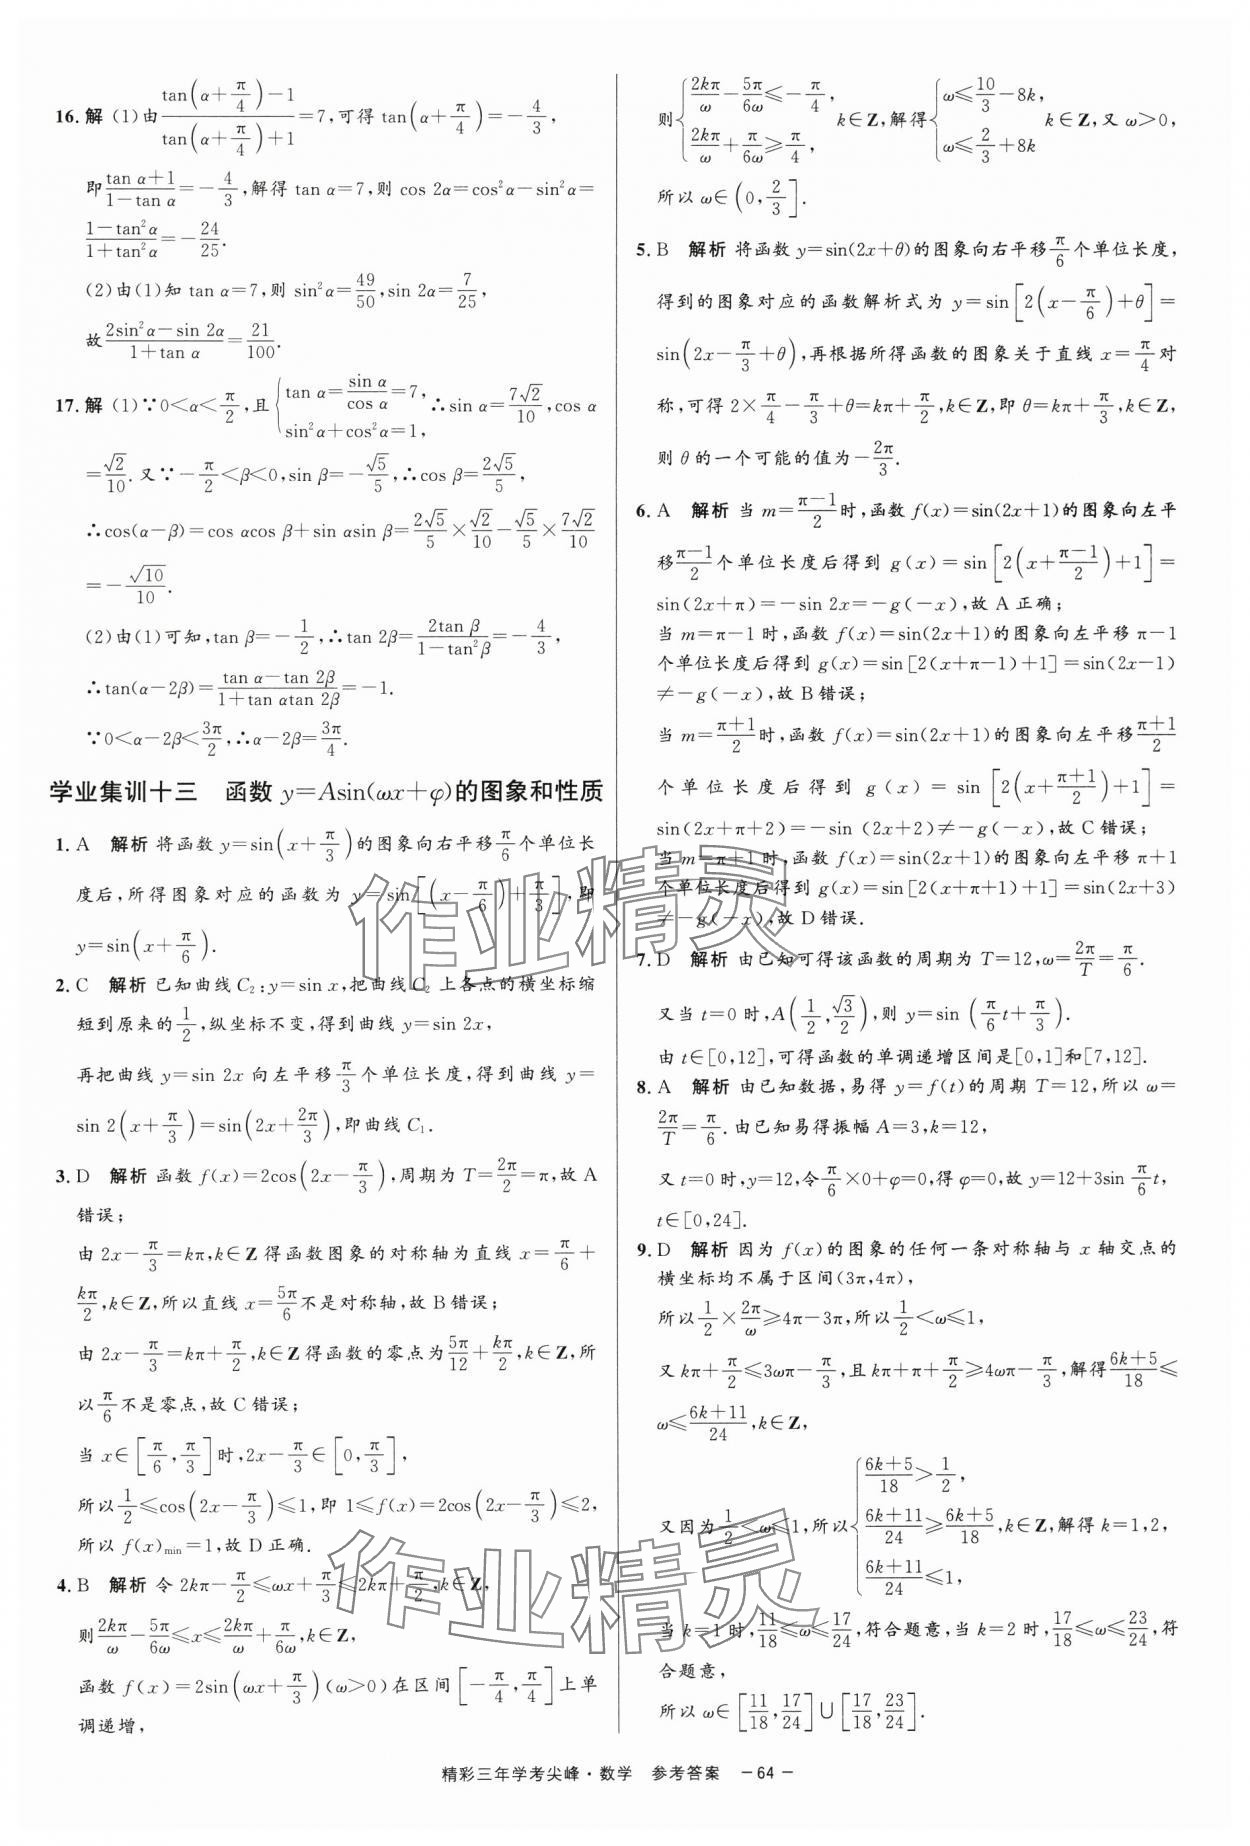 16. 解 (1)由\frac{tan(α+\frac{π}{4})-1}{tan(α+\frac{π}{4})+1}=7,可得 tan(α+\frac{π}{4})=-\frac{4}{3},
即\frac{tan α+1}{1-tan α}=-\frac{4}{3},解得 tan α=7,则 cos 2α=cos²α-sin²α=
\frac{1-tan²α}{1+tan²α}=-\frac{24}{25}.
(2)由(1)知 tan α=7,则 sin²α=\frac{49}{50},sin 2α=\frac{7}{25},
故\frac{2sin²α-sin 2α}{1+tan α}=\frac{21}{100}.
17. 解 (1)∵0<α<\frac{π}{2},且{tan α=\frac{sin α}{cos α}=7, sin²α+cos²α=1, ∴sin α=\frac{7√2}{10},cos α
=\frac{√2}{10}.又∵-\frac{π}{2}<β<0,sin β=-\frac{√5}{5},∴cos β=\frac{2√5}{5},
∴cos(α-β)=cos αcos β+sin αsin β=\frac{2√5}{5}×\frac{√2}{10}-\frac{√5}{5}×\frac{7√2}{10}
=-\frac{√10}{10}.
(2)由(1)可知,tan β=-\frac{1}{2},∴tan 2β=\frac{2tan β}{1-tan²β}=-\frac{4}{3},
∴tan(α-2β)=\frac{tan α-tan 2β}{1+tan αtan 2β}=-1.
∵0<α-2β<\frac{3π}{2},∴α-2β=\frac{3π}{4}.
学业集训十三 函数 y=Asin(ωx+φ)的图象和性质
1. A 解析 将函数 y=sin(x+\frac{π}{3})的图象向右平移\frac{π}{6}个单位长
度后,所得图象对应的函数为 y=sin[(x-\frac{π}{6})+\frac{π}{3}],即
y=sin(x+\frac{π}{6}).
2. C 解析 已知曲线 C₂:y=sin x,把曲线 C₂ 上各点的横坐标缩
短到原来的\frac{1}{2},纵坐标不变,得到曲线 y=sin 2x,
再把曲线 y=sin 2x 向左平移\frac{π}{3}个单位长度,得到曲线 y=
sin 2(x+\frac{π}{3})=sin(2x+\frac{2π}{3}),即曲线 C₁.
3. D 解析 函数 f(x)=2cos(2x-\frac{π}{3}),周期为 T=\frac{2π}{2}=π,故 A
错误;
由 2x-\frac{π}{3}=kπ,k∈Z 得函数图象的对称轴为直线 x=\frac{π}{6}+
\frac{kπ}{2},k∈Z,所以直线 x=\frac{5π}{6}不是对称轴,故 B 错误;
由 2x-\frac{π}{3}=kπ+\frac{π}{2},k∈Z 得函数的零点为\frac{5π}{12}+\frac{kπ}{2},k∈Z,所
以\frac{π}{6}不是零点,故 C 错误;
当 x∈[\frac{π}{6},\frac{π}{3}]时,2x-\frac{π}{3}∈[0,\frac{π}{3}],
所以\frac{1}{2}≤cos(2x-\frac{π}{3})≤1,即 1≤f(x)=2cos(2x-\frac{π}{3})≤2,
所以 f(x)min=1,故 D 正确.
4. B 解析 令 2kπ-\frac{π}{2}≤ωx+\frac{π}{3}≤2kπ+\frac{π}{2},k∈Z,
则\frac{2kπ}{ω}-\frac{5π}{6ω}≤x≤\frac{2kπ}{ω}+\frac{π}{6ω},k∈Z,
函数 f(x)=2sin(ωx+\frac{π}{3})(ω>0)在区间[-\frac{π}{4},\frac{π}{4}]上单
调递增,
则{\frac{2kπ}{ω}-\frac{5π}{6ω}≤-\frac{π}{4}, \frac{2kπ}{ω}+\frac{π}{6ω}≥\frac{π}{4}, k∈Z,解得{ω≤\frac{10}{3}-8k, ω≤\frac{2}{3}+8k k∈Z,又 ω>0,
所以 ω∈(0,\frac{2}{3}].
5. B 解析 将函数 y=sin(2x+θ)的图象向右平移\frac{π}{6}个单位长度,
得到的图象对应的函数解析式为 y=sin[2(x-\frac{π}{6})+θ]=
sin(2x-\frac{π}{3}+θ),再根据所得函数的图象关于直线 x=\frac{π}{4}对
称,可得 2×\frac{π}{4}-\frac{π}{3}+θ=kπ+\frac{π}{2},k∈Z,即 θ=kπ+\frac{π}{3},k∈Z,
则 θ 的一个可能的值为-\frac{2π}{3}.
6. A 解析 当 m=\frac{π-1}{2}时,函数 f(x)=sin(2x+1)的图象向左平
移\frac{π-1}{2}个单位长度后得到 g(x)=sin[2(x+\frac{π-1}{2})+1]=
sin(2x+π)=-sin 2x=-g(-x),故 A 正确;
当 m=π-1 时,函数 f(x)=sin(2x+1)的图象向左平移 π-1
个单位长度后得到 g(x)=sin[2(x+π-1)+1]=sin(2x-1)
≠-g(-x),故 B 错误;
当 m=\frac{π+1}{2}时,函数 f(x)=sin(2x+1)的图象向左平移\frac{π+1}{2}
个单位长度后得到 g(x)=sin[2(x+\frac{π+1}{2})+1]=
sin(2x+π+2)=-sin (2x+2)≠-g(-x),故 C 错误;
当 m=π+1 时,函数 f(x)=sin(2x+1)的图象向左平移 π+1
个单位长度后得到 g(x)=sin[2(x+π+1)+1]=sin(2x+3)
≠-g(-x),故 D 错误.
7. D 解析 由已知可得该函数的周期为 T=12,ω=\frac{2π}{T}=\frac{π}{6}.
又当 t=0 时,A(\frac{1}{2},\frac{√3}{2}),则 y=sin(\frac{π}{6}t+\frac{π}{3}).
由 t∈[0,12],可得函数的单调递增区间是[0,1]和[7,12].
8. A 解析 由已知数据,易得 y=f(t)的周期 T=12,所以 ω=
\frac{2π}{T}=\frac{π}{6}.由已知易得振幅 A=3,k=12,
又 t=0 时,y=12,令\frac{π}{6}×0+φ=0,得 φ=0,故 y=12+3sin \frac{π}{6}t,
t∈[0,24].
9. D 解析 因为 f(x)的图象的任何一条对称轴与 x 轴交点的
横坐标均不属于区间(3π,4π),
所以\frac{1}{2}×\frac{2π}{ω}≥4π-3π,所以\frac{1}{2}<ω≤1,
又 kπ+\frac{π}{2}≤3ωπ-\frac{π}{3},且 kπ+π+\frac{π}{2}≥4ωπ-\frac{π}{3},解得\frac{6k+5}{18}≤
ω≤\frac{6k+11}{24},k∈Z,
又因为\frac{1}{2}<ω≤1,所以{\frac{6k+5}{18}>\frac{1}{2}, \frac{6k+11}{24}≥\frac{6k+5}{18}, \frac{6k+11}{24}≤1, k∈Z,解得 k=1,2,
当 k=1 时,\frac{11}{18}≤ω≤\frac{17}{24},符合题意,当 k=2 时,\frac{17}{18}≤ω≤\frac{23}{24},符
合题意,
所以 ω∈[\frac{11}{18},\frac{17}{24}]∪[\frac{17}{18},\frac{23}{24}].
精彩三年学考尖峰·数学 参考答案 -64-
作业精灵
作业精灵